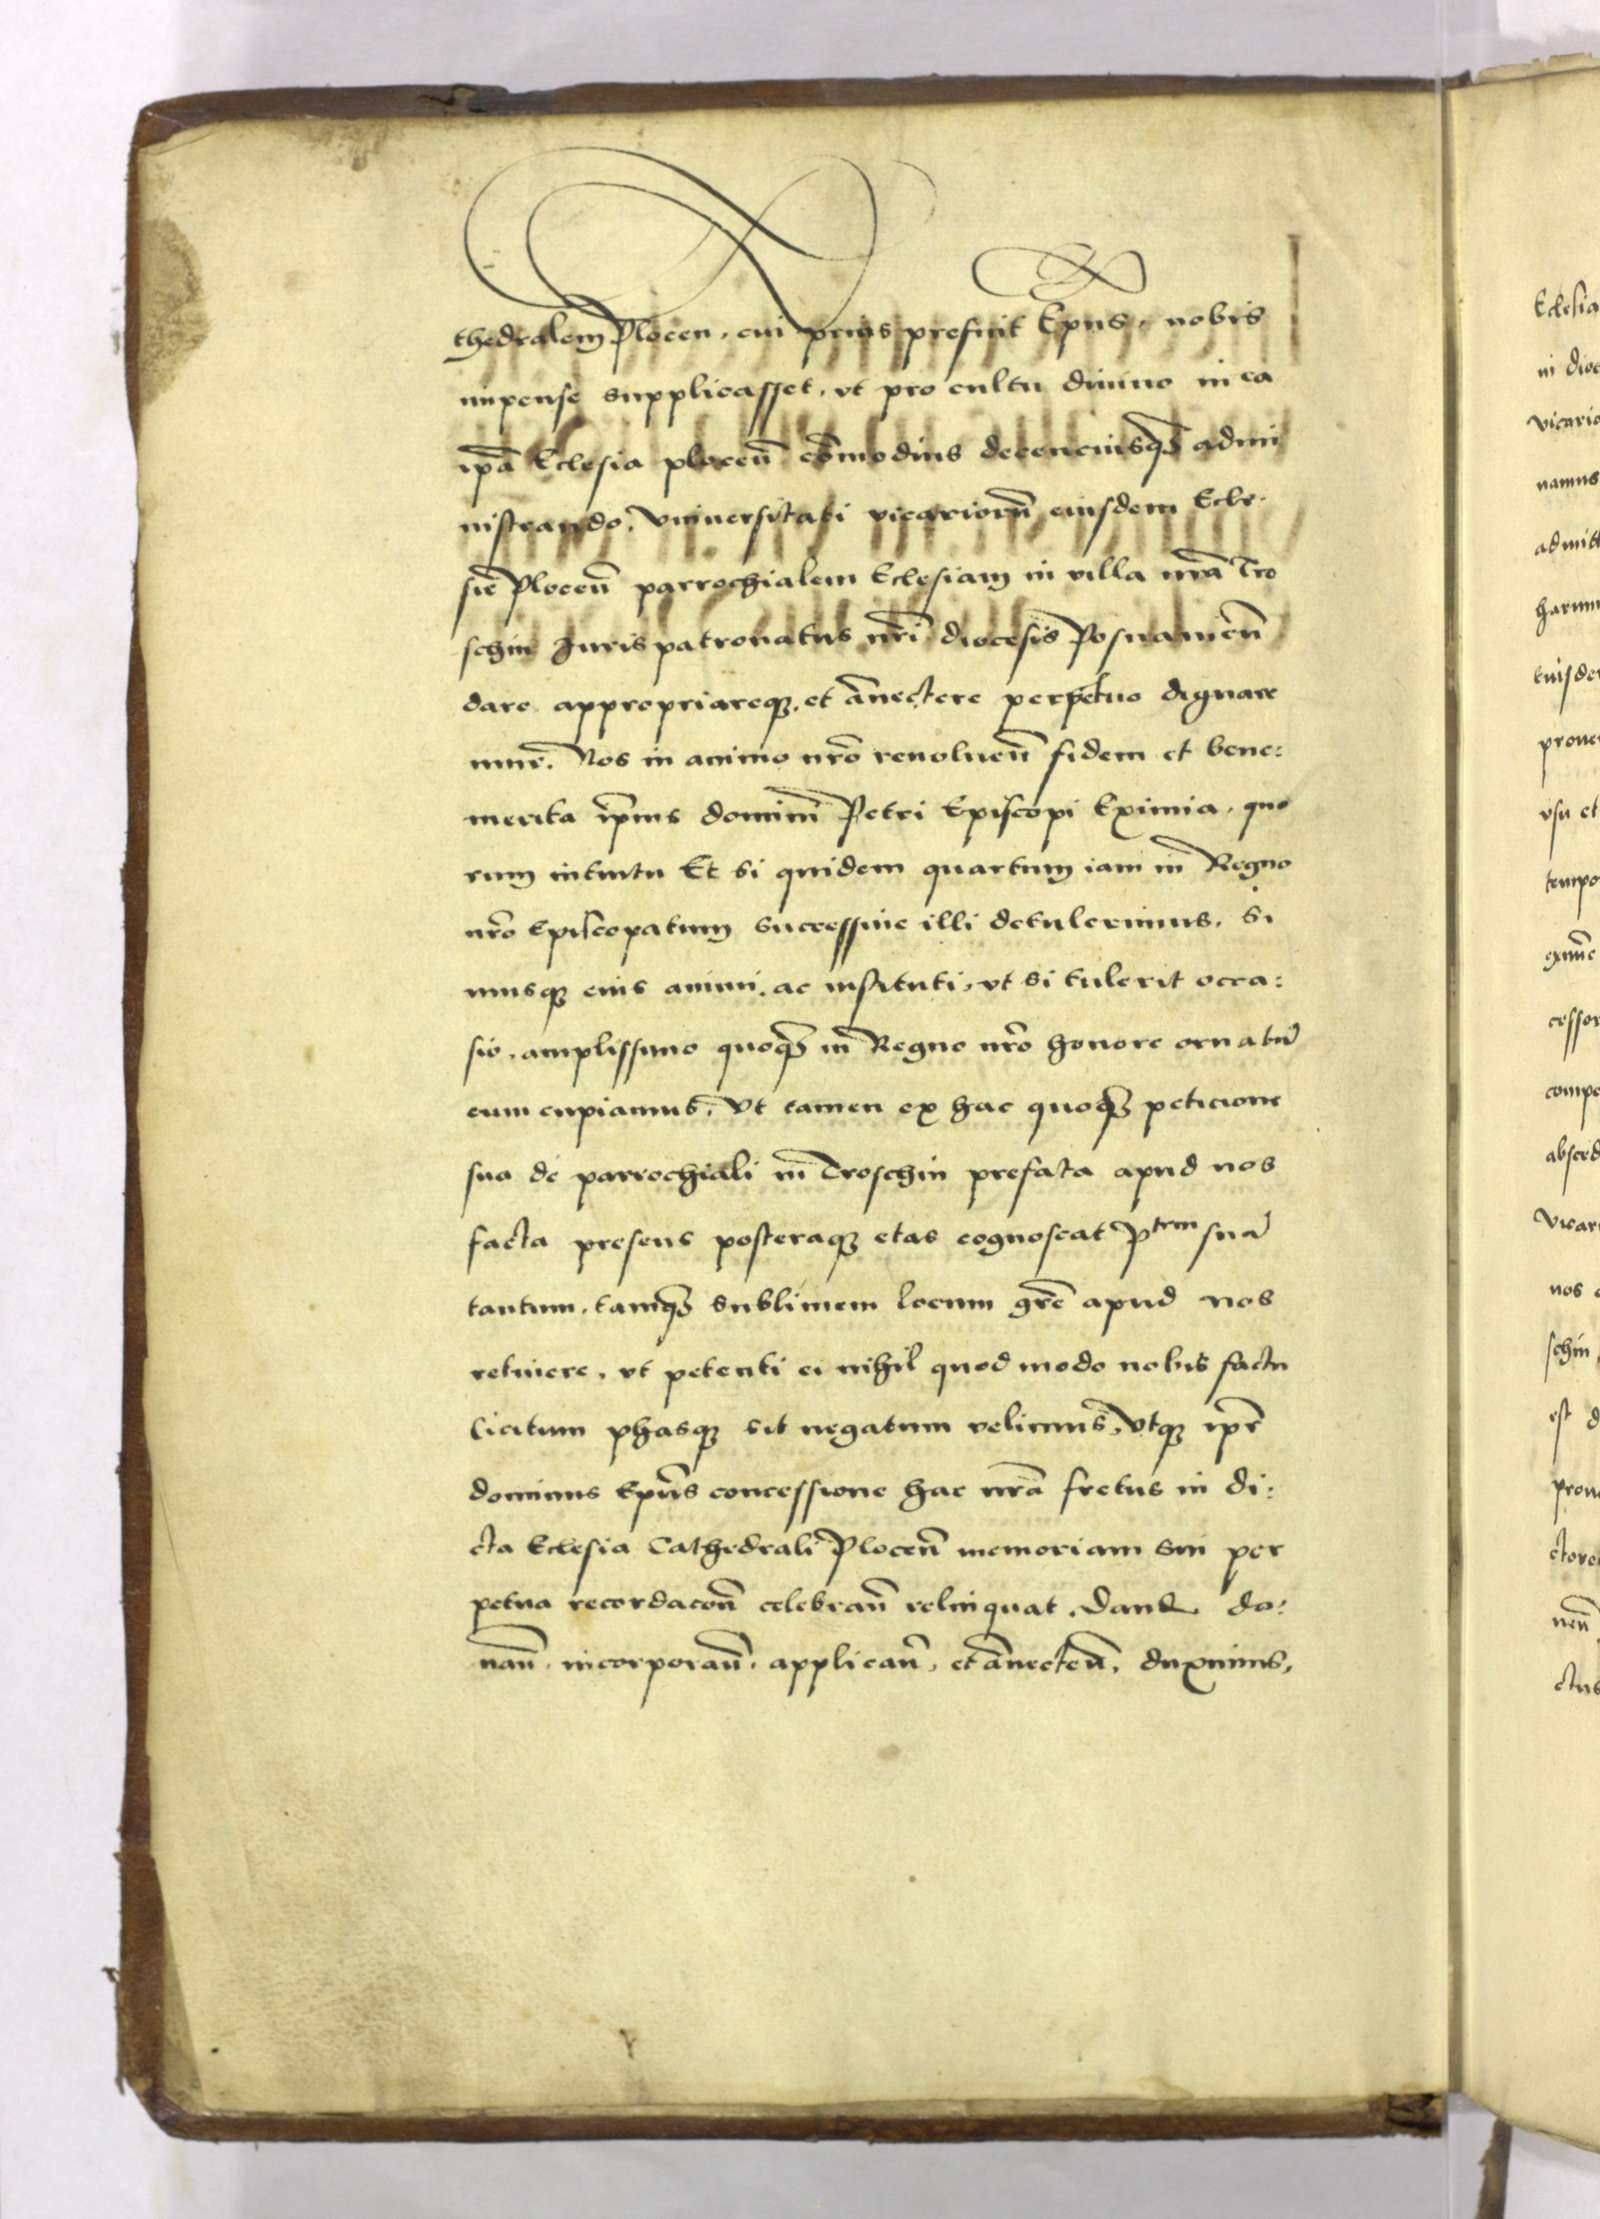 thedralem Plocen. cui prius prefuit Epus. nobis
impense supplicasset, vt pro cultu diuino in ea
ipā Eclesia plocen̄ cōmodius decenciusqȝ admi
nistrando. Vniuersitati vicariorū eiusdem Ecle-
sie Plocen̄ parrochialem Eclesiam in villa nrā Tro
schin Iuris patronatus nrī diocesis Posnanien̄
dare appropriareqȝ et ānectere perpetuo dignare
mur. Nos in animo nrō reuoluen̄ fidem et bene:
merita ipīus domini Petri Episcopi Eximia, quo
rum intuitu Et si quidem quartum iam in Regno
nrō Episcopatum successiue illi detulerimus, Si
musqȝ eius animi ac instituti, vt si tulerit occa:
sio, amplissimo quoqȝ in Regno nrō honore ornatū
eum cupiamus. Vt tamen ex hac quoqȝ peticione
sua de parrochiali in Troschin prefata apud nos
facta presens posteraqȝ etas cognoscat Ptem suā
tantum, tamqȝ sublimem locum grē apud nos
retinere, vt petenti ei nihil quod modo nobis factu
licitum phasqȝ sit negatum velimus, Vtqȝ ipē
dominus Epūs concessione hac nrā fretus in di:
cta Eclesia Cathedrali Plocen̄ memoriam sui per
petua recordacōn̄ celebran̄ relinquat. Dand da:
nan̄. incorporan̄. applican̄, et ānecten̄, duximus,
Eclesia
in dioc
vicario
namus
admitt
harum
eiusde
proue
vsu et
tempo
cessor
compe
absced
Vicari
nos
schin
est d
proue
ctore
nen̄
ctus